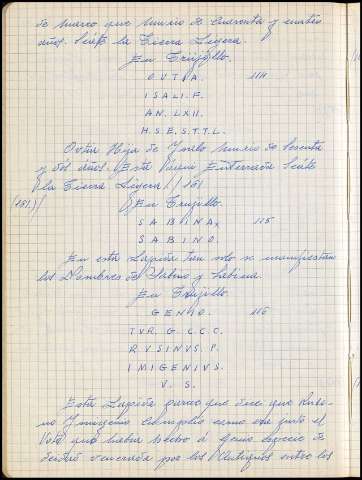 de Marco que murio de cuarenta y cuatro
años. Seate la Tierra Ligera.
En Trujillo.
O.V.T.V.A. 114
I S A L I. F.
AN. LXII.
H. S. E. S. T. T. L.
Ovtva Hija de Ysalo murio de sesenta
y dos años. Esta Va enterrada Seate
la Tierra Ligera (/ 151
(151.)/ En Trujillo.
S A B I N A x 115
S A B I N O.
En esta Lapida tan solo se manifiestan
los Nombres de Sabino y Sabina.
En Trujillo.
G E N I O. 116
TVR. G. C C C.
R V S I N V S. P.
I M I G E N I V S.
V. S.
Esta Lapida parece que dice que
cumplio como era justo el
Voto que habia hecho á Genio
venerada por los Antiguos entre los